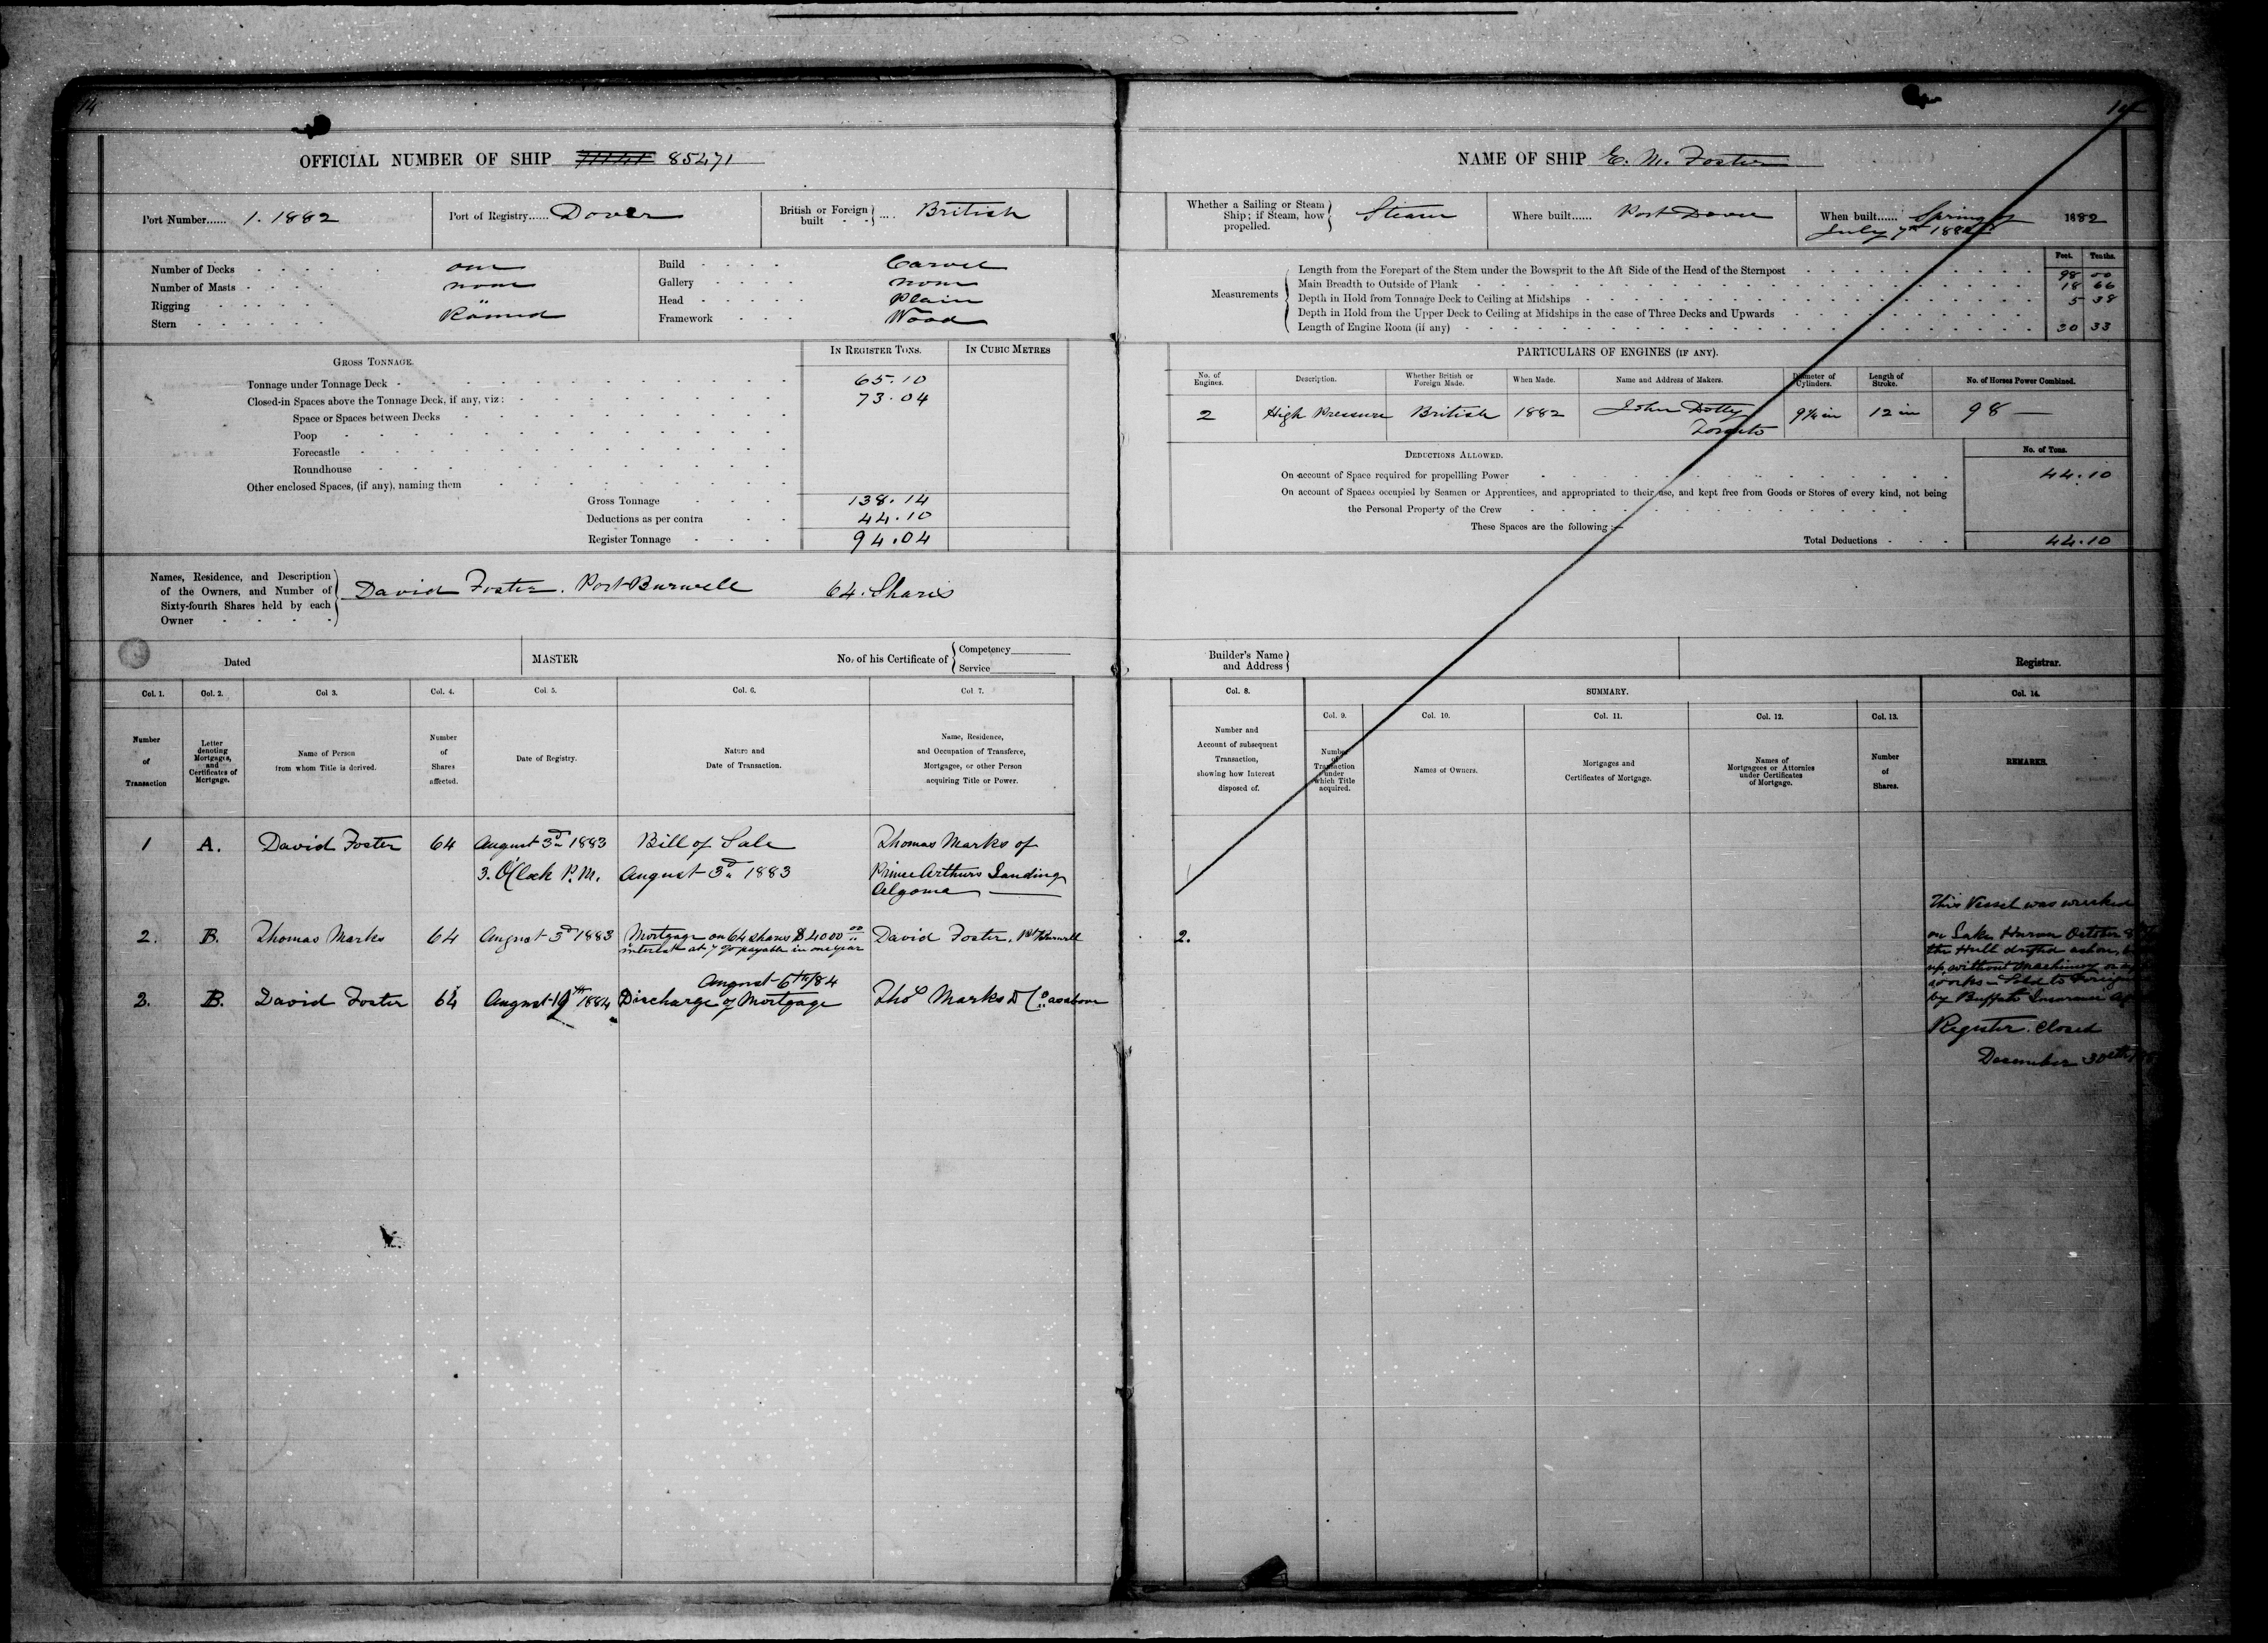 14
OFFICIAL NUMBER OF SHIP 85471
Port Number...... 1. 1882
Port of Registry...... Dover
British or Foreign built .... British
Number of Decks one
Number of Masts none
Rigging "
Stern Round
Build Carvel
Gallery none
Head Plain
Framework Wood
GROSS TONNAGE.
IN REGISTER TONS.
IN CUBIC METRES
Tonnage under Tonnage Deck 65.10
Closed-in Spaces above the Tonnage Deck, if any, viz: 73.04
Space or Spaces between Decks
Poop
Forecastle
Roundhouse
Other enclosed Spaces, (if any), naming them
Gross Tonnage 138.14
Deductions as per contra 44.10
Register Tonnage 94.04
Names, Residence, and Description
of the Owners, and Number of
Sixty-fourth Shares held by each
Owner
David Foster. Port Burwell 64. Shares
Dated
MASTER
No. of his Certificate of
Competency
Service
Col. 1.
Col. 2.
Col 3.
Col. 4.
Col. 5.
Col. 6.
Col. 7.
Number
of
Transaction
Letter
denoting
Mortgages,
and
Certificates of
Mortgage.
Name of Person
from whom Title is derived.
Number
of
Shares
affected.
Date of Registry.
Nature and
Date of Transaction.
Name, Residence,
and Occupation of Transferee,
Mortgagee, or other Person
acquiring Title or Power.
1 A. David Foster 64 August 3d 1883 Bill of Sale Thomas Marks of
3. O'Clock P.M. August 3d 1883 Prince Arthurs Landing
Algoma
2. B. Thomas Marks 64 August 3d 1883 Mortgage on 64 Shares $4000 00 David Foster, Pt Burwell
interest at 7 % payable in one year
August 6th/84
2. B. David Foster 64 August 19th 1884 Discharge of Mortgage Thos Marks & Co as above
14
NAME OF SHIP E. M. Foster
Whether a Sailing or Steam
Ship; if Steam, how
propelled.
Steam
Where built...... Port Dover
When built...... Spring of 1882
July 7th 1882
Measurements
Feet. Tenths.
Length from the Forepart of the Stem under the Bowsprit to the Aft Side of the Head of the Sternpost 98 00
Main Breadth to Outside of Plank 18 66
Depth in Hold from Tonnage Deck to Ceiling at Midships 5 38
Depth in Hold from the Upper Deck to Ceiling at Midships in the case of Three Decks and Upwards
Length of Engine Room (if any) 30 33
PARTICULARS OF ENGINES (IF ANY).
No. of
Engines.
Description.
Whether British or
Foreign Made.
When Made.
Name and Address of Makers.
Diameter of
Cylinders.
Length of
Stroke.
No. of Horses Power Combined.
2 High Pressure British 1882 John Dotty 12 in 98
Toronto
DEDUCTIONS ALLOWED.
No. of Tons.
On account of Space required for propellling Power 44.10
On account of Spaces occupied by Seamen or Apprentices, and appropriated to their use, and kept free from Goods or Stores of every kind, not being
the Personal Property of the Crew
These Spaces are the following:—
Total Deductions 44.10
Builder's Name
and Address
Registrar.
Col. 8.
SUMMARY.
Col. 14.
Col. 9.
Col. 10.
Col. 11.
Col. 12.
Col. 13.
Number and
Account of subsequent
Transaction,
showing how Interest
disposed of.
Number
of
Transaction
under
which Title
acquired.
Names of Owners.
Mortgages and
Certificates of Mortgage.
Names of
Mortgagees or Attornies
under Certificates
of Mortgage.
Number
of
Shares.
REMARKS.
2.
This Vessel was wrecked
on Lake Huron October
the Hull drifted ashore,
up, without Machinery or
works – Sold to
by Buffalo Insurance
Register Closed
December 30th